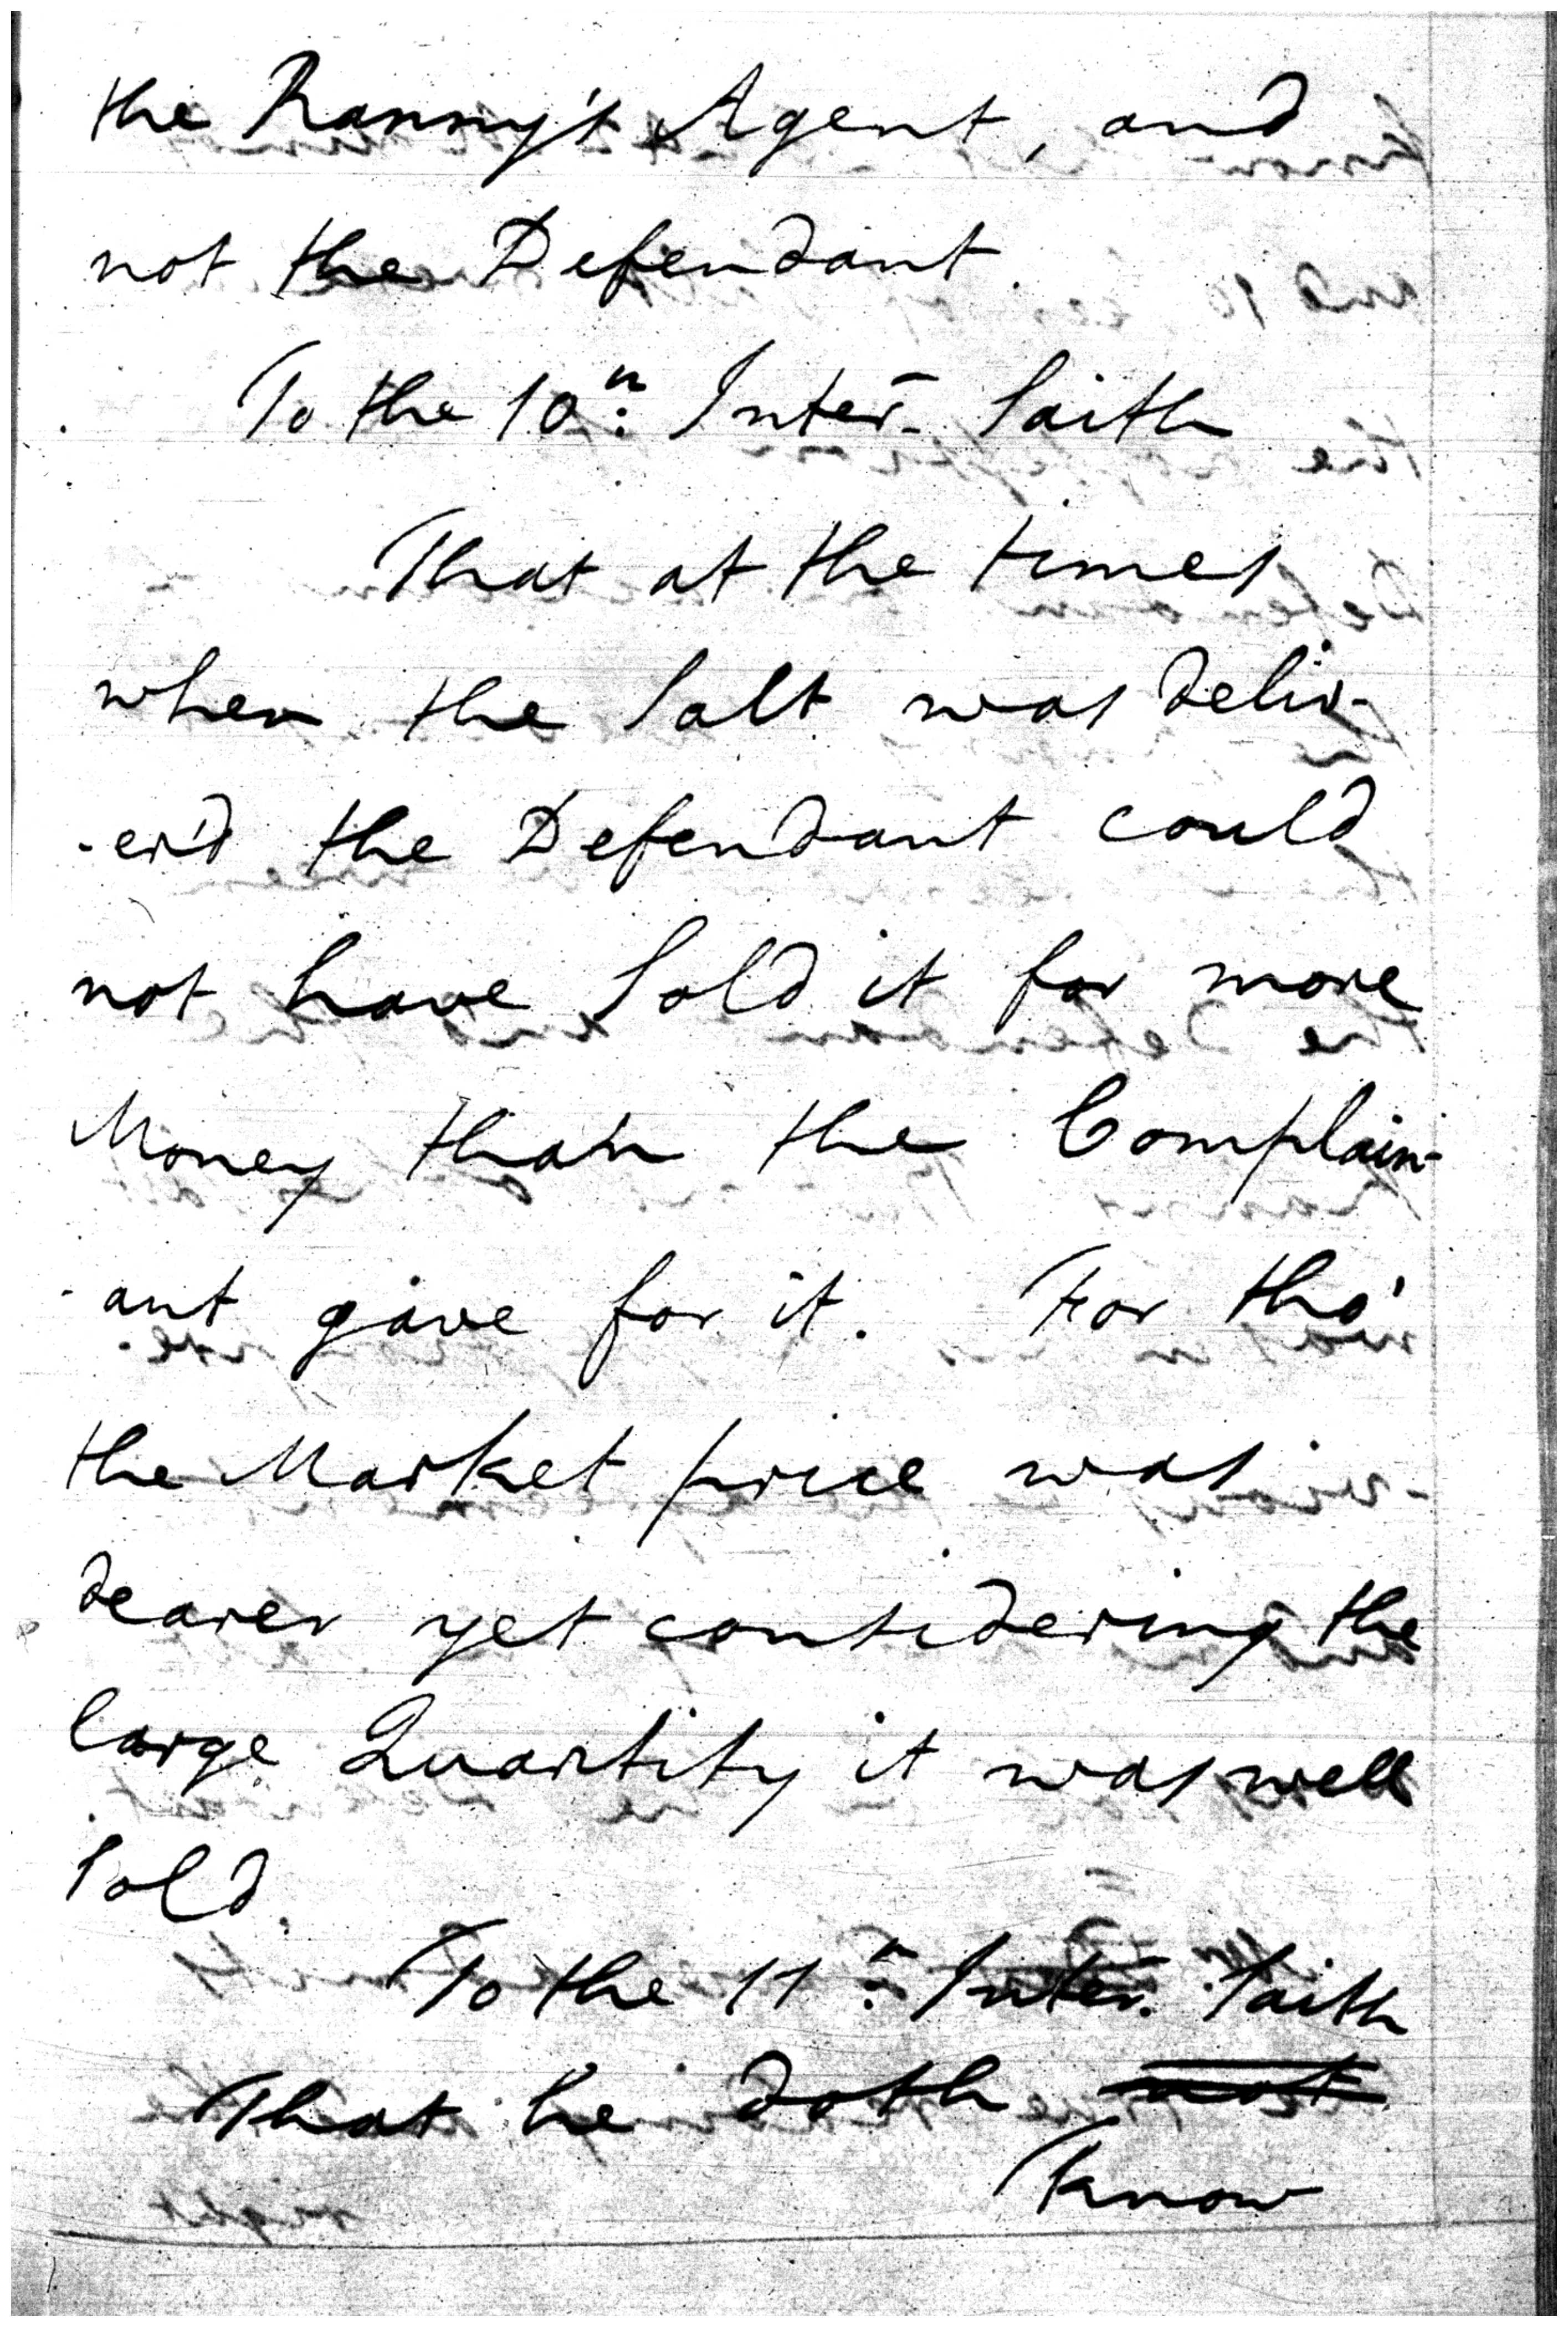 the Ranny's Agent, and
not the Defendant.
To the 10th: Inter. Saith
That at the times
when the Salt was deliv-
-er'd the Defendant could
not have Sold it for more
Money than the Complain-
-ant gave for it. For tho'
the Market price was
dearer yet considering the
large Quantity it was well
Sold.
To the 11th: Inter. Saith
That he doth not
know